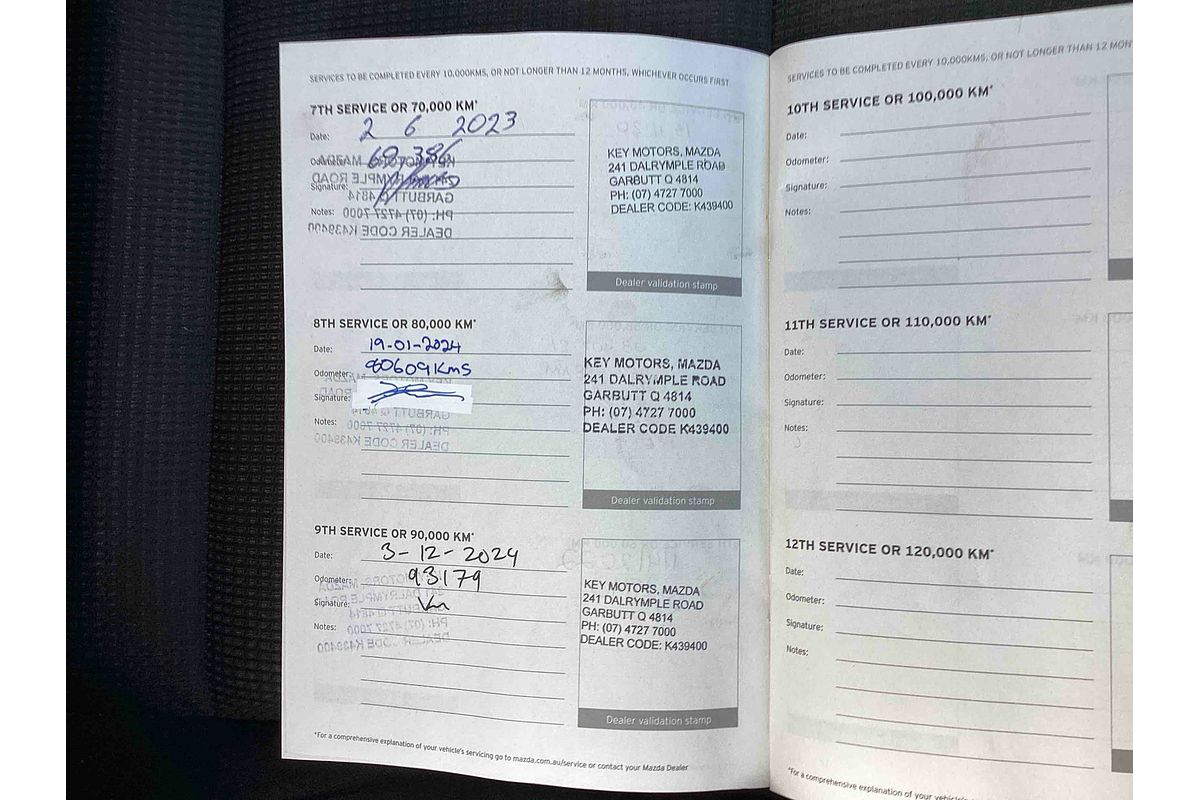 SERVICES TO BE COMPLETED EVERY 10,000KMS, OR NOT LONGER THAN 12 MONTHS, WHICHEVER OCCURS FIRST
7TH SERVICE OR 70,000 KM*
Date: 2 6 2023
Odometer:
Signature:
Notes:
KEY MOTORS, MAZDA
241 DALRYMPLE ROAD
GARBUTT Q 4814
PH: (07) 4727 7000
DEALER CODE: K439400
Dealer validation stamp
8TH SERVICE OR 80,000 KM*
Date: 19-01-2024
Odometer: 80609 Kms
Signature:
Notes:
KEY MOTORS, MAZDA
241 DALRYMPLE ROAD
GARBUTT Q 4814
PH: (07) 4727 7000
DEALER CODE K439400
Dealer validation stamp
9TH SERVICE OR 90,000 KM*
Date: 3-12-2024
Odometer: 93179
Signature:
Notes:
KEY MOTORS, MAZDA
241 DALRYMPLE ROAD
GARBUTT Q 4814
PH: (07) 4727 7000
DEALER CODE: K439400
Dealer validation stamp
*For a comprehensive explanation of your vehicle's servicing go to mazda.com.au/service or contact your Mazda Dealer
SERVICES TO BE COMPLETED EVERY 10,000KMS, OR NOT LONGER THAN 12 MON
10TH SERVICE OR 100,000 KM*
Date:
Odometer:
Signature:
Notes:
11TH SERVICE OR 110,000 KM*
Date:
Odometer:
Signature:
Notes:
12TH SERVICE OR 120,000 KM*
Date:
Odometer:
Signature:
Notes:
*For a comprehensive explanation of your